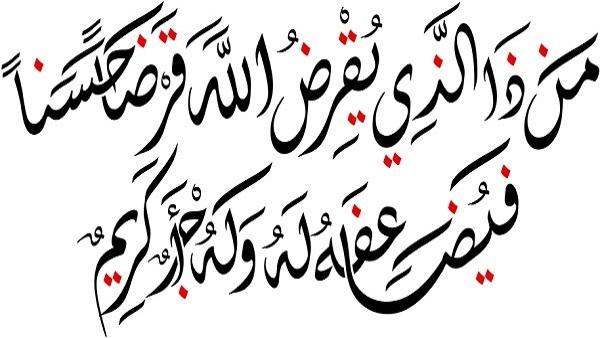 مَن ذَا الَّذِي يُقْرِضُ اللَّهَ قَرْضًا حَسَنًا
فَيُضَاعِفَهُ لَهُ وَلَهُ أَجْرٌ كَرِيمٌ